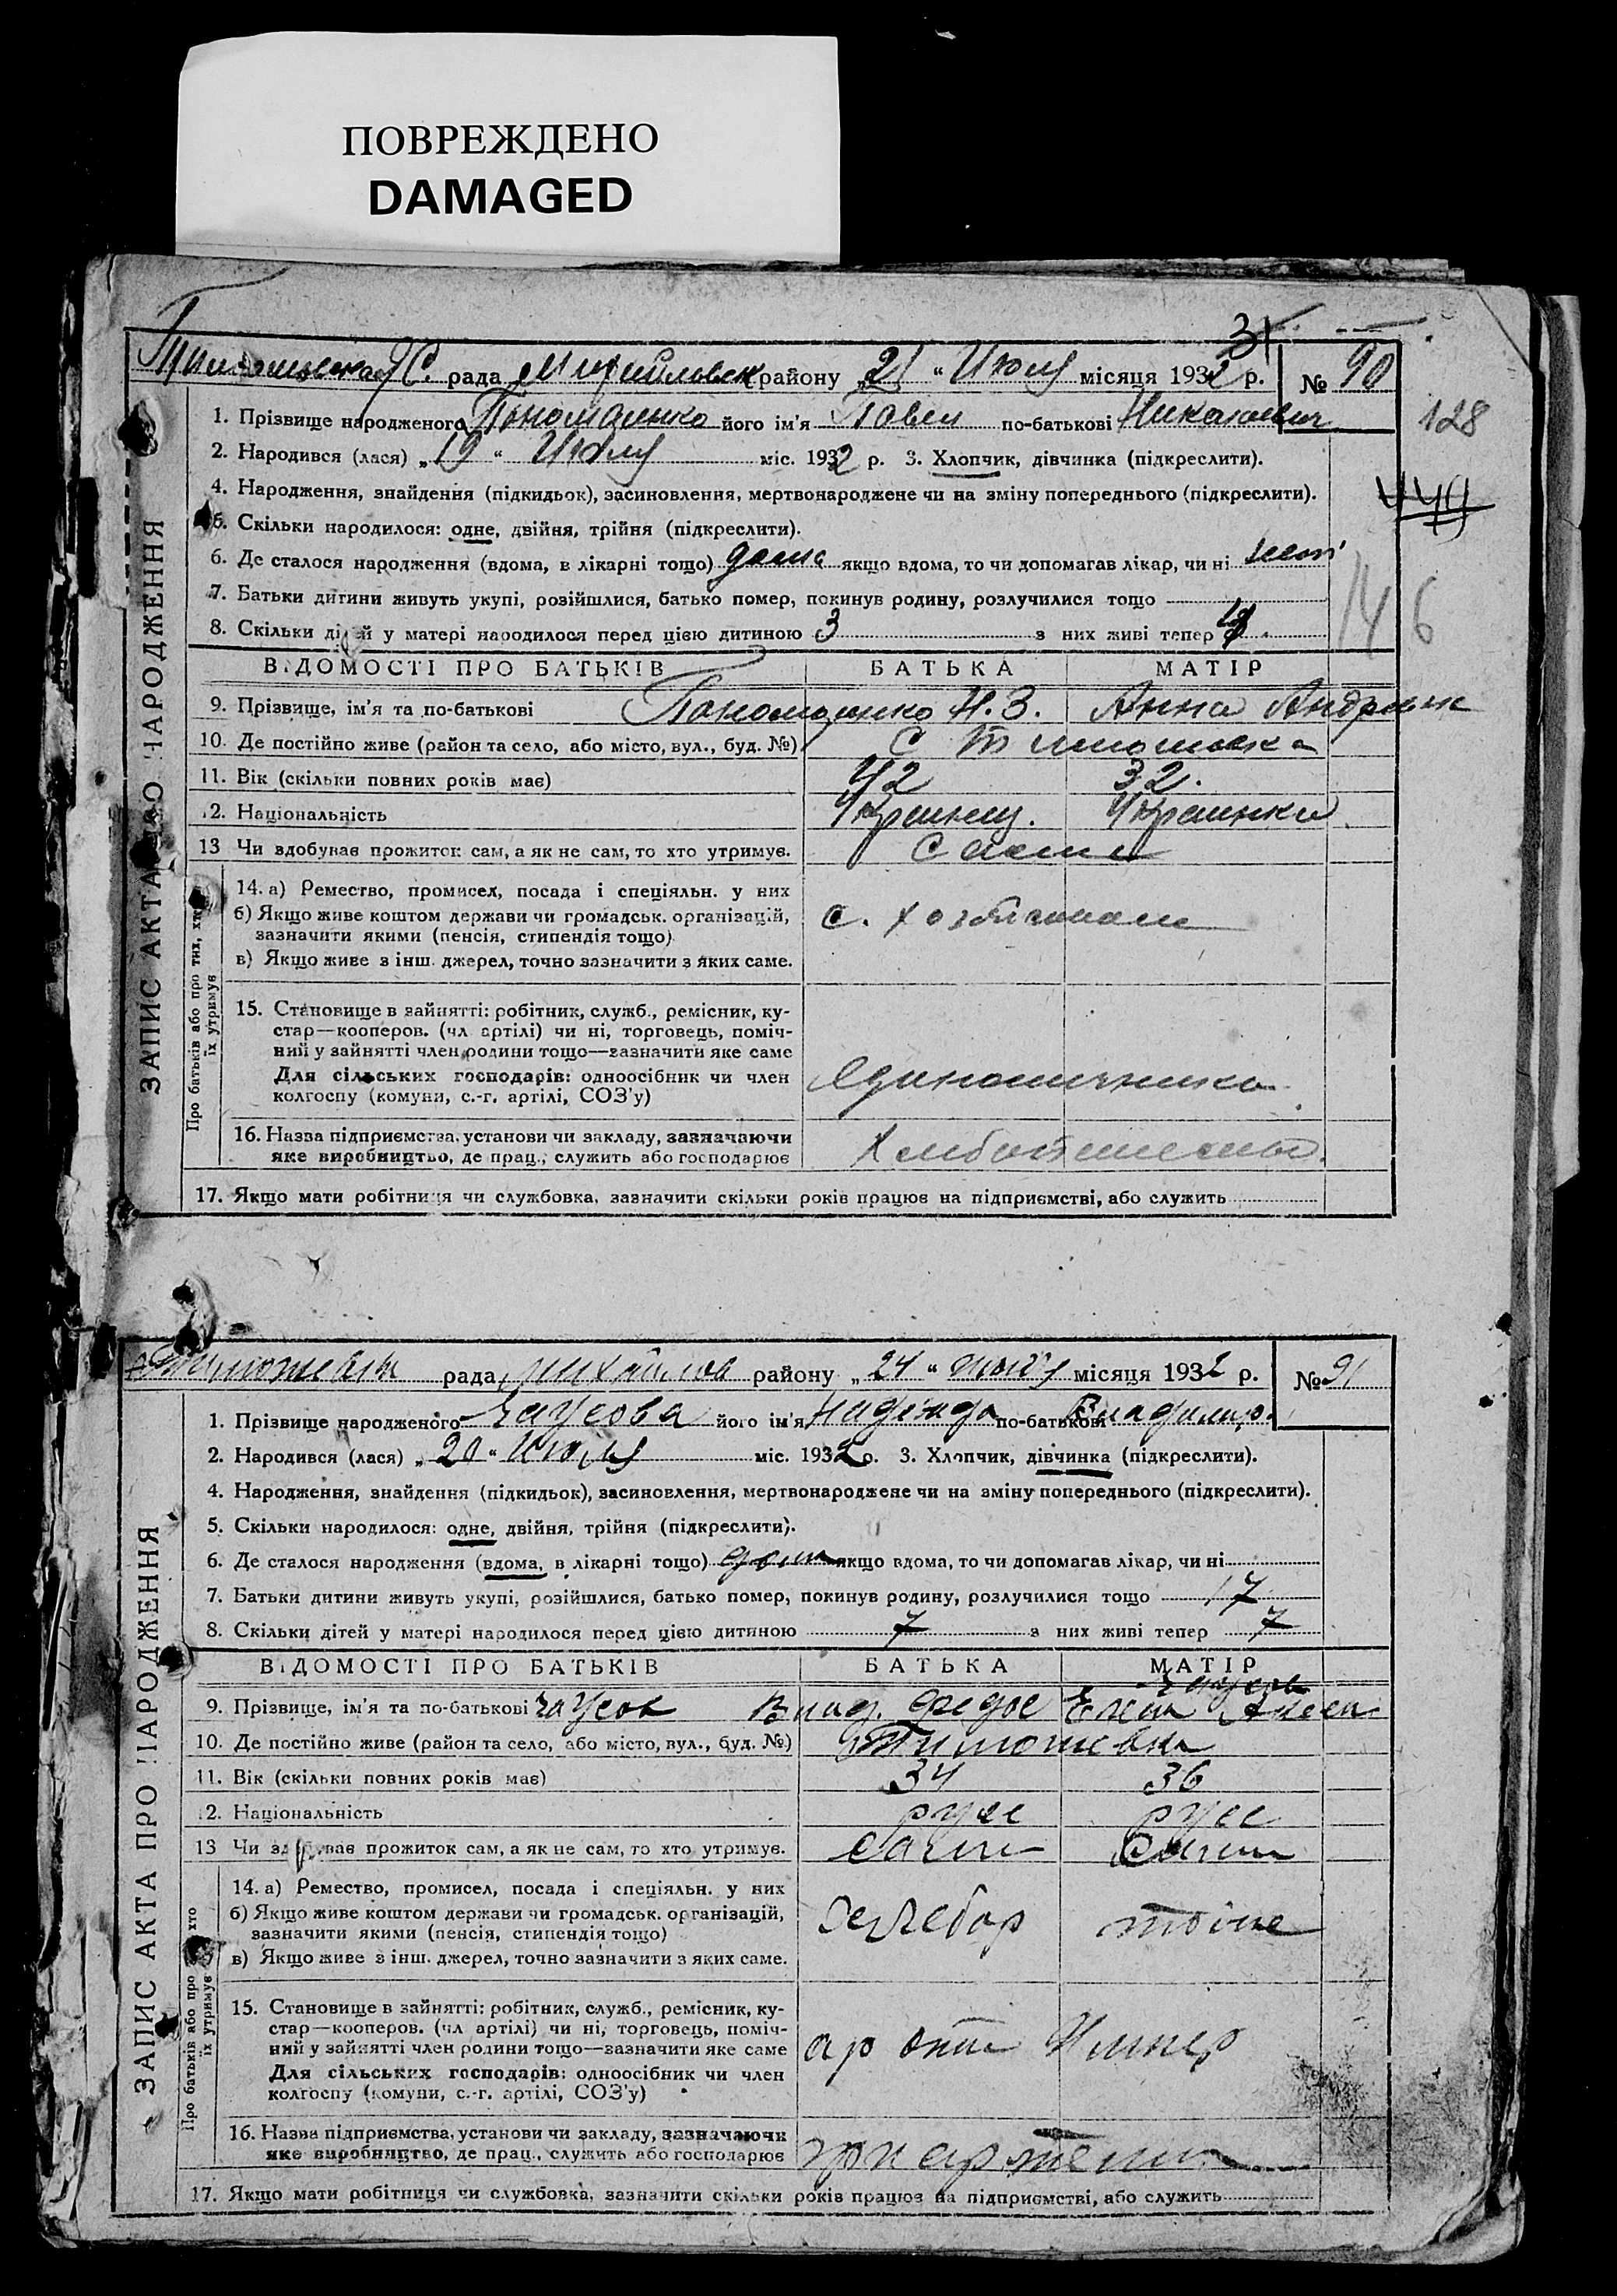 ПОВРЕЖДЕНО
DAMAGED
31
С. рада район у „21“ Июля місяця 1932 р. № 90
1. Прізвище народженого Пономаренко його ім'я Павел по-батькові Николаевич
128
2. Народився (лася) „19“ Июля міс. 1932 р. 3. Хлопчик, дівчинка (підкреслити).
4. Народження, знайдення (підкидьок), засиновлення, мертвонароджене чи на зміну попереднього (підкреслити).
449
5. Скільки народилося: одне, двійня, трійня (підкреслити).
6. Де сталося народження (вдома, в лікарні тощо) дома якщо вдома, то чи допомагав лікар, чи ні
7. Батьки дитини живуть укупі, розійшлися, батько помер, покинув родину, розлучилися тощо
146
8. Скільки дітей у матері народилося перед цією дитиною 3 з них живі тепер
ВІДОМОСТІ ПРО БАТЬКІВ БАТЬКА МАТІР
9. Прізвище, ім'я та по-батькові Пономаренко Н.З. Анна Андр
10. Де постійно живе (район та село, або місто, вул., буд. №) С Тимошовка
11. Вік (скільки повних років має) 42 32.
12. Національність Украинец. Украинка
13 Чи здобував прожиток сам, а як не сам, то хто утримує. Сами
ЗАПИС АКТА ПРО НАРОДЖЕННЯ
Про батьків або про тих, хто їх утримує
14. а) Ремество, промисел, посада і спеціяльн. у них
б) Якщо живе коштом держави чи громадськ. організацій,
зазначити якими (пенсія, стипендія тощо)
в) Якщо живе з інш. джерел, точно зазначити з яких саме.
с.
15. Становище в зайнятті: робітник, служб., ремісник, ку-
стар—кооперов. (чл артілі) чи ні, торговець, поміч-
ний у зайнятті член родини тощо—зазначити яке саме
Для сільських господарів: одноосібник чи член
колгоспу (комуни, с.-г. артілі, СОЗ'у)
Единоличники
16. Назва підприємства, установи чи закладу, зазначаючи
яке виробництво, де прац., служить або господарює
17. Якщо мати робітниця чи службовка, зазначити скільки років працює на підприємстві, або служить
рада району „24“ місяця 1932 р. № 91
1. Прізвище народженого Чаусова його ім'я Надежда по-батькові Владимир.
2. Народився (лася) „20“ Июля міс. 1932 р. 3. Хлопчик, дівчинка (підкреслити).
4. Народження, знайдення (підкидьок), засиновлення, мертвонароджене чи на зміну попереднього (підкреслити).
5. Скільки народилося: одне, двійня, трійня (підкреслити).
6. Де сталося народження (вдома, в лікарні тощо) дома якщо вдома, то чи допомагав лікар, чи ні
7. Батьки дитини живуть укупі, розійшлися, батько помер, покинув родину, розлучилися тощо
8. Скільки дітей у матері народилося перед цією дитиною 7 з них живі тепер 7
ВІДОМОСТІ ПРО БАТЬКІВ БАТЬКА МАТІР
9. Прізвище, ім'я та по-батькові Чаусов Влад. Федос Елена
10. Де постійно живе (район та село, або місто, вул., буд. №) Тимошевка
11. Вік (скільки повних років має) 34 36
12. Національність русс русс
13 Чи здобував прожиток сам, а як не сам, то хто утримує. Сами Сами
ЗАПИС АКТА ПРО НАРОДЖЕННЯ
Про батьків або про тих, хто їх утримує
14. а) Ремество, промисел, посада і спеціяльн. у них
б) Якщо живе коштом держави чи громадськ. організацій,
зазначити якими (пенсія, стипендія тощо)
в) Якщо живе з інш. джерел, точно зазначити з яких саме.
15. Становище в зайнятті: робітник, служб., ремісник, ку-
стар—кооперов. (чл артілі) чи ні, торговець, поміч-
ний у зайнятті член родини тощо—зазначити яке саме
Для сільських господарів: одноосібник чи член
колгоспу (комуни, с.-г. артілі, СОЗ'у)
16. Назва підприємства, установи чи закладу, зазначаючи
яке виробництво, де прац., служить або господарює
при артели
17. Якщо мати робітниця чи службовка, зазначити скільки років працює на підприємстві, або служить